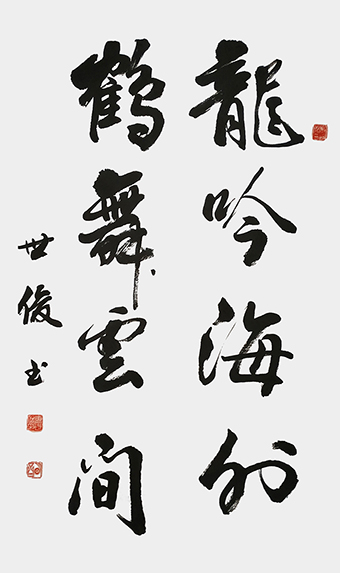 龍吟海外
鶴舞雲间
世俊书